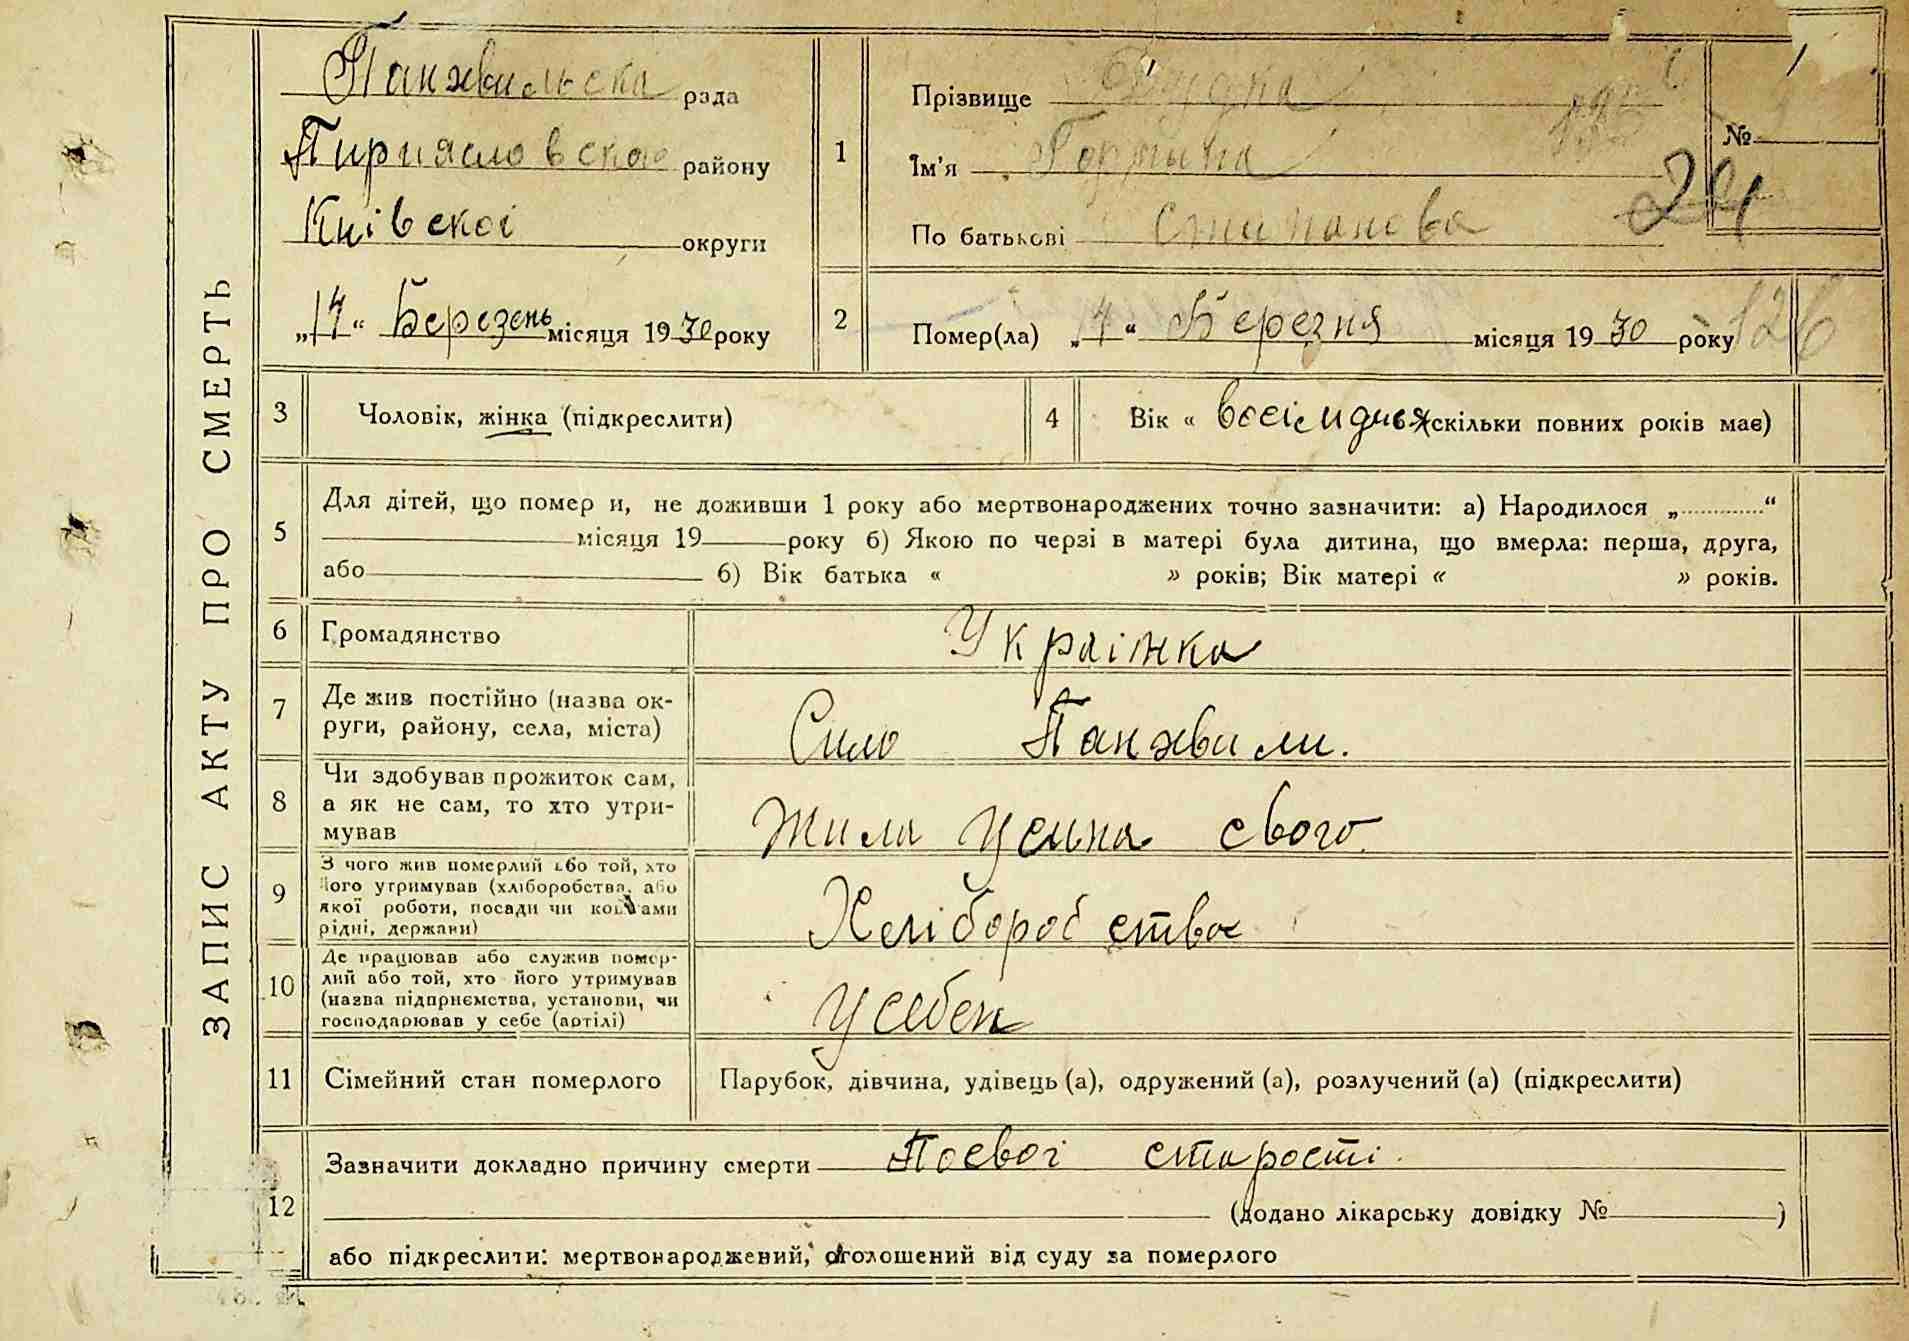 ЗАПИС АКТУ ПРО СМЕРТЬ
Панхвильска рада
Пириясловскоо району
Киівскоі округи
„17“ Березень місяця 1930 року
1
Прізвище
Ім'я Горпина
По батькові Стипанова
№
24
2
Помер(ла) „17“ Березня місяця 1930 року
126
3
Чоловік, жінка (підкреслити)
4
Вік « (скільки повних років має)
5
Для дітей, що помер и, не доживши 1 року або мертвонароджених точно зазначити: а) Народилося „ “
місяця 19 року б) Якою по черзі в матері була дитина, що вмерла: перша, друга,
або б) Вік батька « » років; Вік матері « » років.
6
Громадянство
Украінка
7
Де жив постійно (назва ок-
руги, району, села, міста)
Сило Панхвили.
8
Чи здобував прожиток сам,
а як не сам, то хто утри-
мував
Жила усина свого
9
З чого жив померлий або той, хто
його утримував (хліборобства, або
якої роботи, посади чи коштами
рідні, держави)
Хліборобства
10
Де працював або служив помер-
лий або той, хто його утримував
(назва підприємства, установи, чи
господарював у себе (артілі)
Усебеи
11
Сімейний стан померлого
Парубок, дівчина, удівець (а), одружений (а), розлучений (а) (підкреслити)
12
Зазначити докладно причину смерти Посвоі старості.
(додано лікарську довідку № )
або підкреслити: мертвонароджений, оголошений від суду за померлого